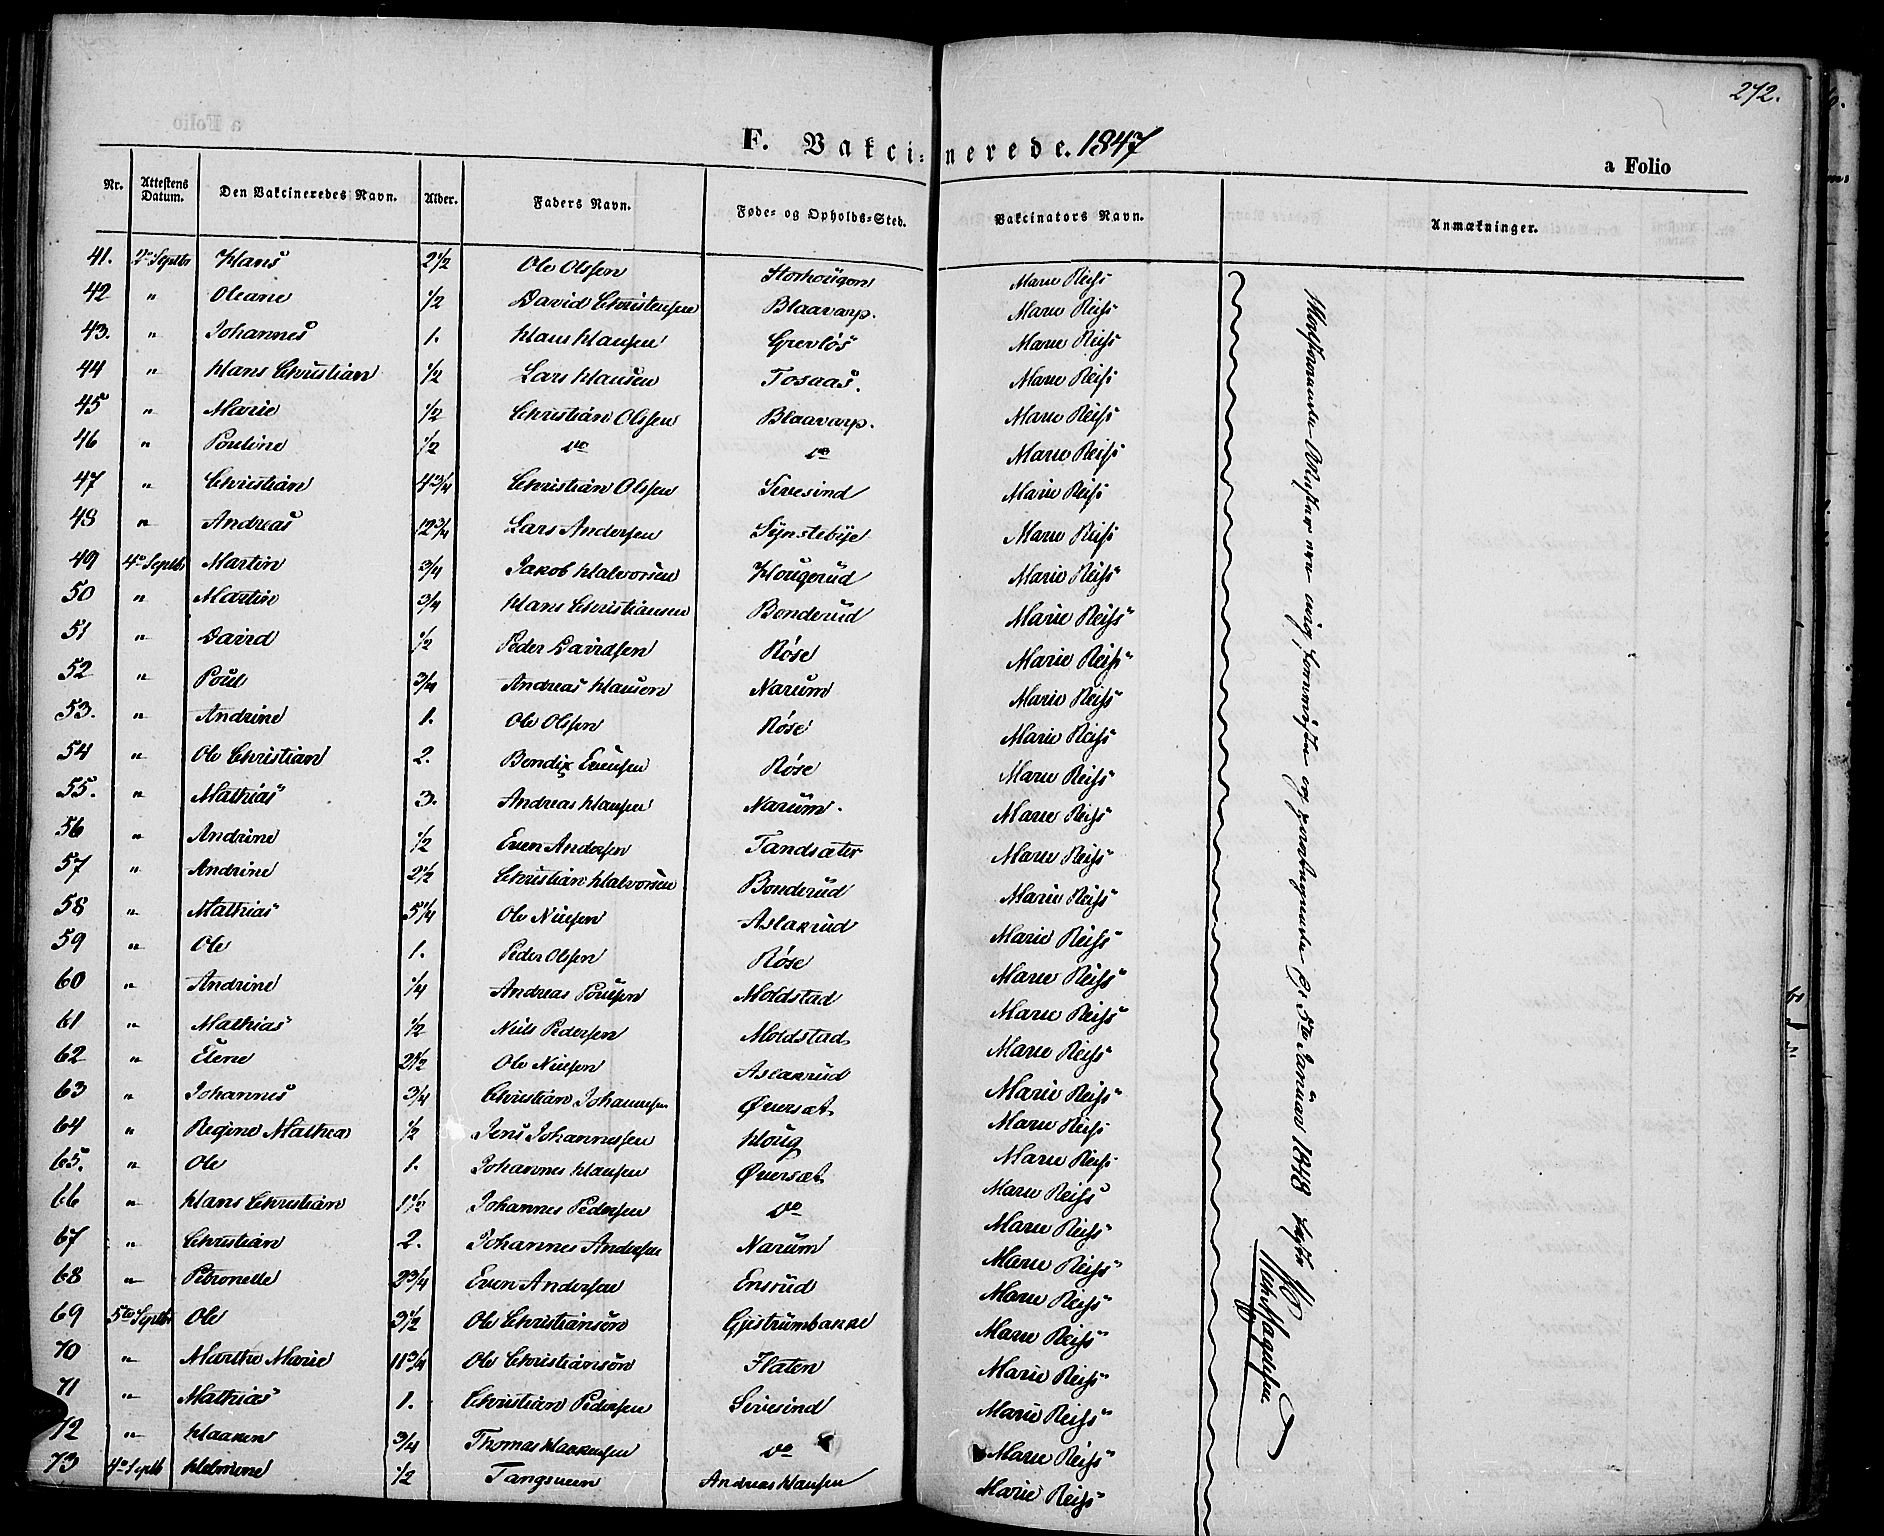 272.
F. Vakcinerede. 1847
a Folio
Nr. Attestens Datum. Den Vakcineredes Navn. Alder. Faders Navn. Føde- og Opholds-Sted. Vakcinators Navn. Anmærkninger.
41. 2den Septbr Hans 2½ Ole Olssen Marie Reiss
42 " Oleane ½ David Christensen Blaavarp. Marie Reiss
43. " Johannes 1. Hans Hansen Grevlös Marie Reiss
44 " Hans Christian ½ Lars Hansen Tosaas. Marie Reiss
45 " Marie ½ Christian Olssen Blaavarp. Marie Reiss
46 " Pouline ½ do do Marie Reiss
47 " Christian 4¾ Christian Olssen Sivesind Marie Reiss
48 " Andreas 12¾ Lars Andersen Synstebye Marie Reiss
49 4de Septbr Martin ¾ Jakob Halvorsen Hougerud Marie Reiss
50 " Martin ¾ Hans Christiansen Bonderud Marie Reiss
51 " David ½ Peder Davidsen Röse Marie Reiss
52 " Poul ¾ Andreas Hansen Narum Marie Reiss
53. " Andrine 1. Ole Olssen Röse Marie Reiss
54 " Ole Christian 2. Bendix Evensen Röse Marie Reiss
55. " Mathias 3. Andreas Hansen Narum. Marie Reiss
56 " Andrine ½ Even Andersen Tandsæter Marie Reiss
57 " Andrine 2½ Christian Halvorsen Bonderud Marie Reiss
58 " Mathias 5¼ Ole Nielsen Aslakrud Marie Reiss
59 " Ole 1. Peder Olssen Röse Marie Reiss
60 " Andrine ¼ Andreas Poulsen Moldstad Marie Reiss
61 " Mathias ½ Niels Pedersen Moldstad Marie Reiss
62 " Elene 2½ Ole Nielsen Aslakrud Marie Reiss
63 " Johannes ¾ Christian Johannesen Øversæt Marie Reiss
64 " Regine Mathea ½ Jens Johannessen Houg Marie Reiss
65. " Ole 1. Johannes Hansen Øversæt Marie Reiss
66 " Hans Christian 1½ Johannes Pedersen do Marie Reiss
67 " Christian 2. Johannes Andersen Narum Marie Reiss
68 " Petronelle 2¾ Even Andersen Ensrud Marie Reiss
69 5te Septbr Ole 3½ Ole Christiansön Gjestrumbakke Marie Reiss
70 " Marthe Marie 11¾ Ole Christiansön Flaten Marie Reiss
71 " Mathias 1. Christian Pedersen Sivesind Marie Reiss
72 " Haaken ¾ Thomas Haakensen do Marie Reiss
73 4de Septbr Helmine ½ Tangsveen Andreas Hansen Marie Reiss
5te Januar 1848